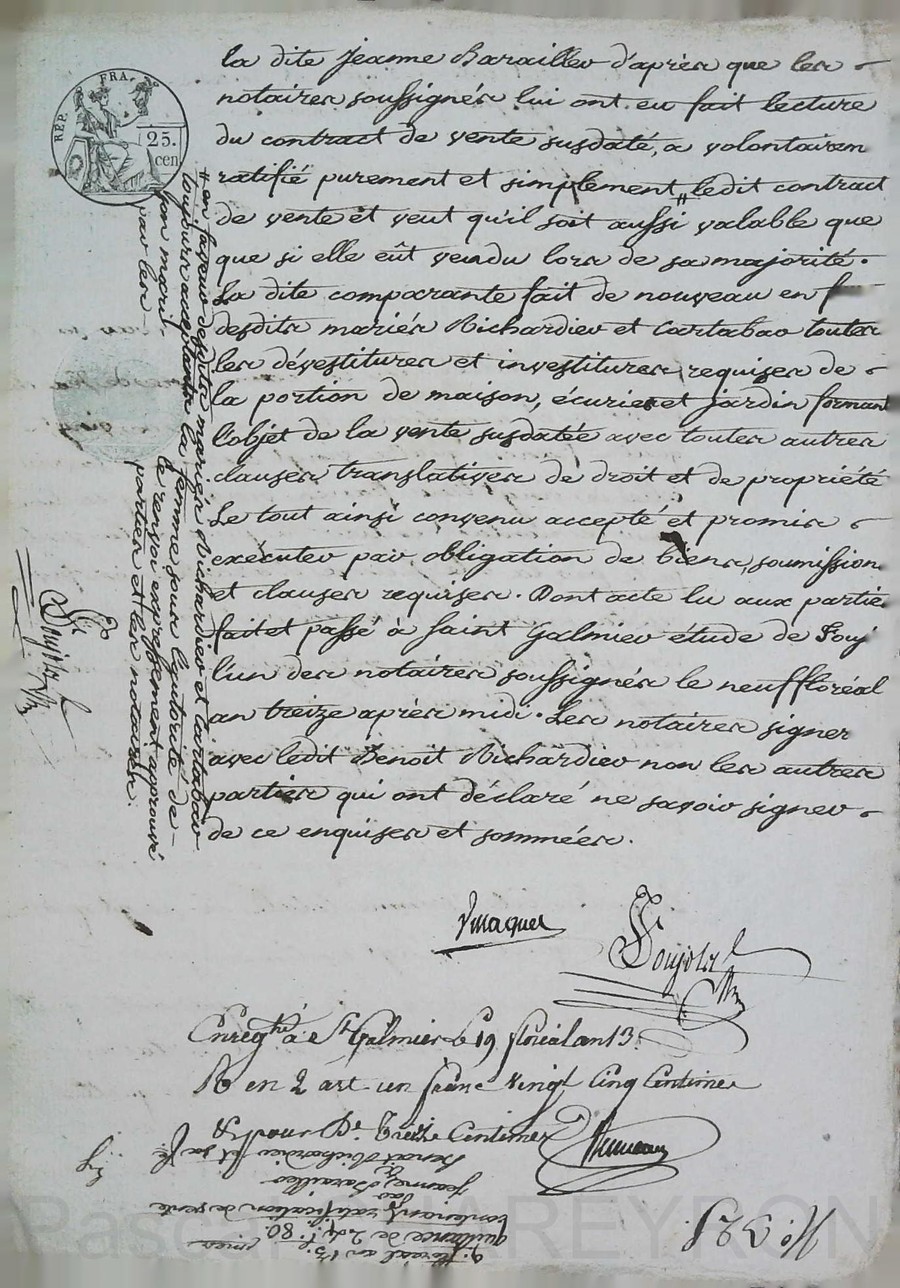 RÉP. FRA.
25.
cen
la dite Jeanne Barailler d'après que les
notaires soussignés lui ont eu fait lecture
du contract de vente susdaté, a volontairem
ratifié purement et simplement ledit contract
de vente et veut qu'il soit aussi valable que
que si elle eût vendu lors de sa majorité.
La dite comparante fait de nouveau en f
desdits mariés Richardier et Cartabao toutes
les dévestitures et investitures requises de
la portion de maison, écuries et jardin formant
l'objet de la vente susdatée avec toutes autres
clauses translatives de droit et de propriété
Le tout ainsi convenu accepté et promis
exécuter par obligation de biens, soumission
et clauses requises. Dont acte lu aux partie
fait et passé à Saint Galmier étude de Pouj
l'un des notaires soussignés le neuf floréal
an treize après midi. Les notaires signer
avec ledit Benoit Richardier non les autres
parties qui ont déclaré ne savoir signer
de ce enquises et sommées.
# en faveur desdits mariés Richardier et Cartabao
toujours acceptants la femme sous l'autorité de
son mari. le renvoi expressément approuvé
par les parties et les notaires.
Enregtré à St Galmier le 19 floréal an 13
R en 2 art un franc vingt cinq Centimes
et pour De treize Centimes
Benoit Richardier et sa
Jeanne Barailler
contenant ratification de vente
quittance de
9. floréal an 13.
No 325